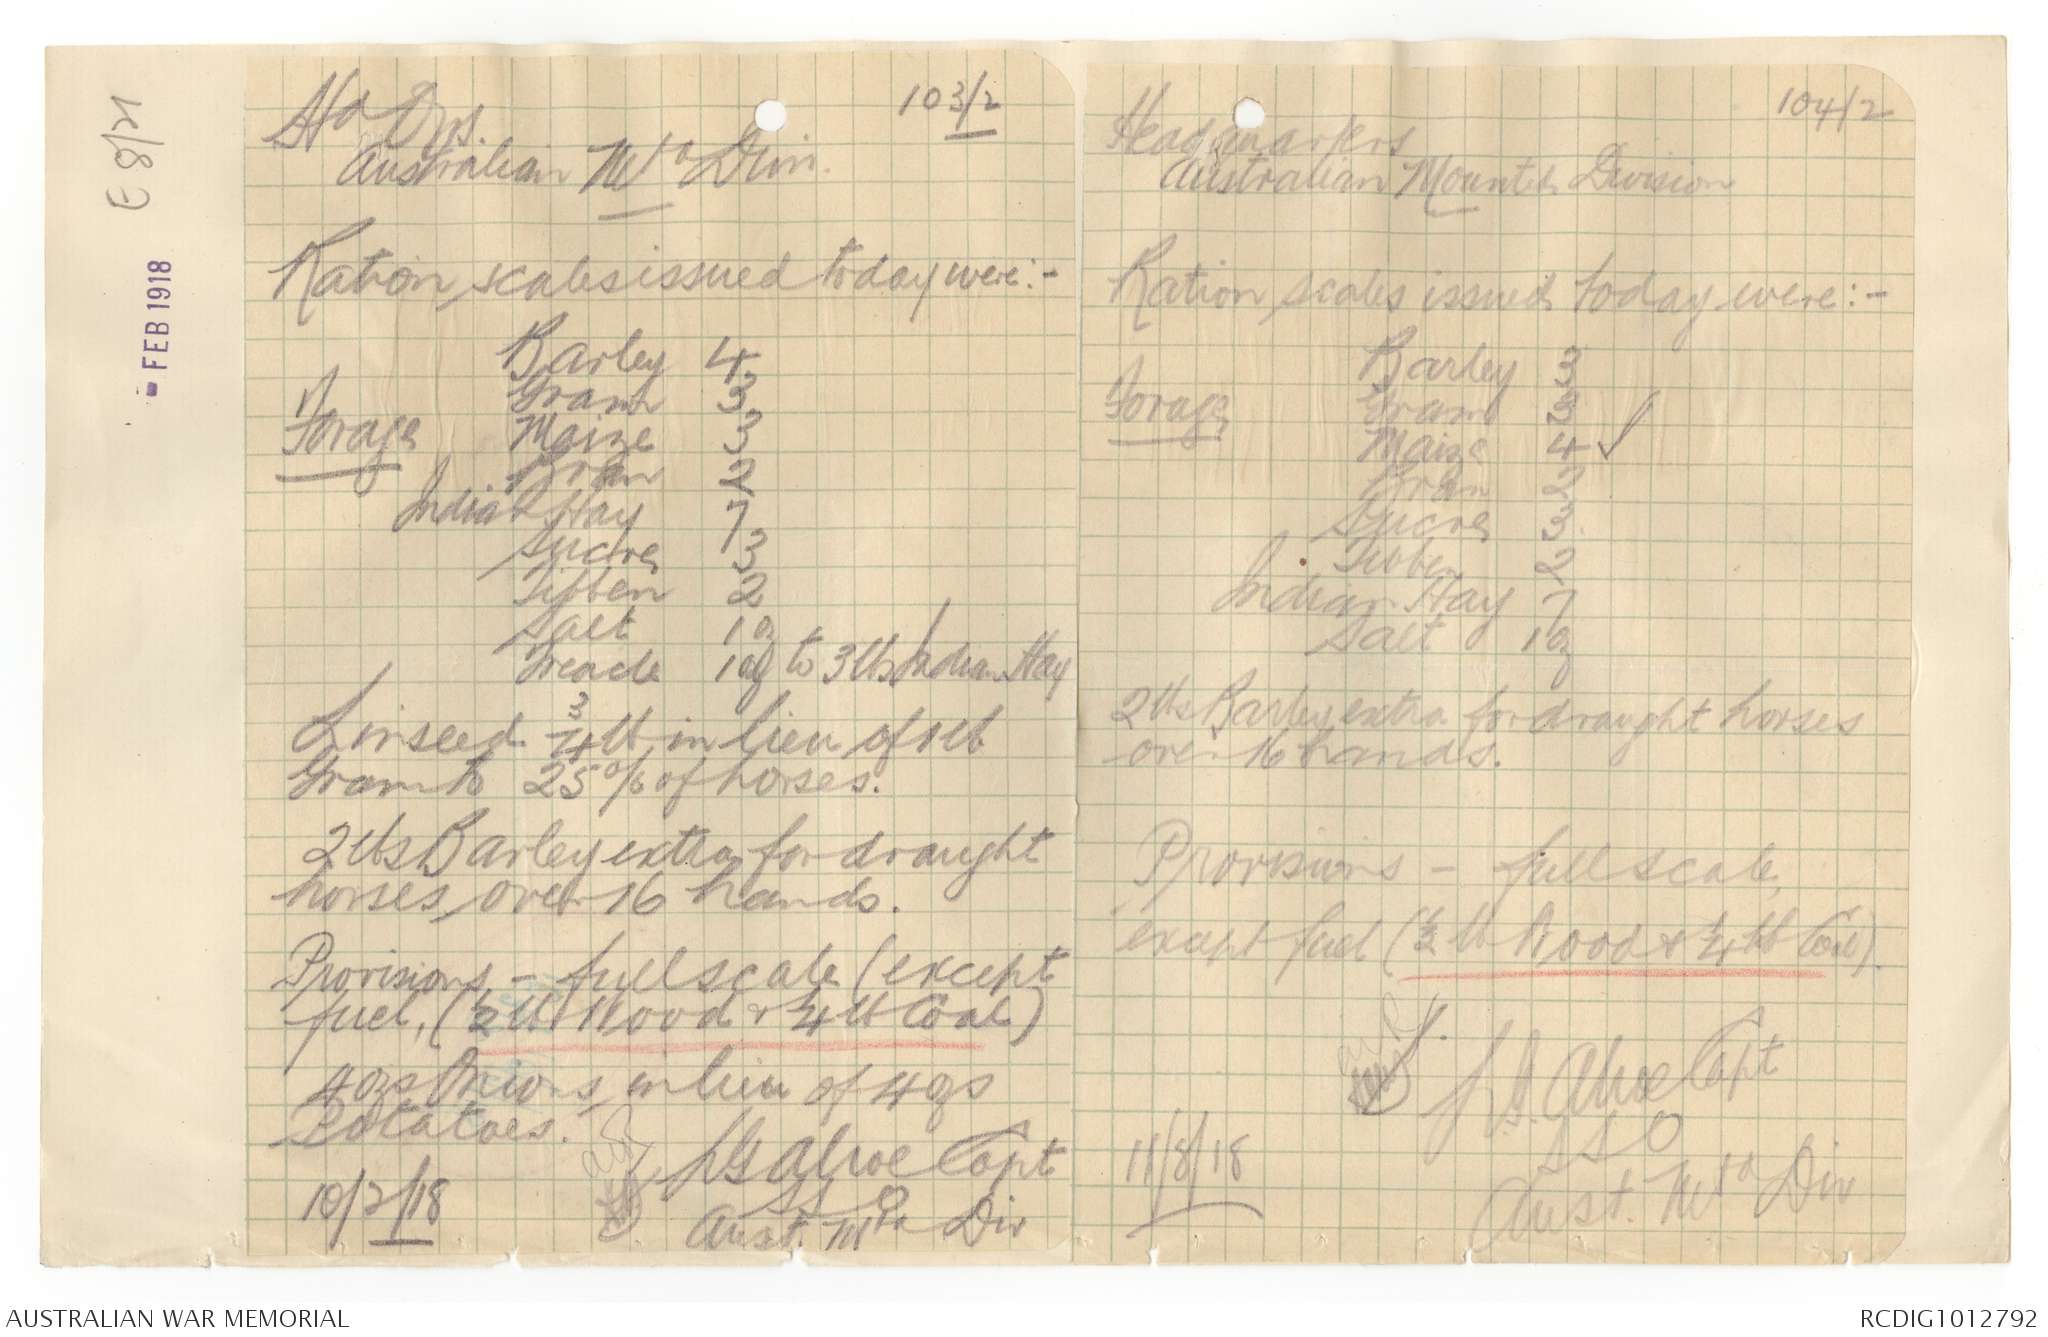 E 8/21
- FEB 1918
Hd Qrs. 103/2
Australian Mtd Divn.
Ration scales issued today were:-
Barley 4
Gram 3
Forage Maize 3
Bran 2
Indian Hay 7
Sucre 3
Tibben 2
Salt 1 oz
Treacle 1 oz to 3 lbs Indian Hay
Linseed 3/4 lb in lieu of 1 lb
Gram to 25% of horses.
2 lbs Barley extra for draught
horses over 16 hands.
Provisions - full scale (except
fuel, (1/2 lb Wood & 1/4 lb Coal)
4 ozs Onions in lieu of 4 ozs
Potatoes.
Capt
S S O
10/2/18
Aust. Mtd Div
104/2
Headquarters
Australian Mounted Division
Ration scales issued today were:-
Barley 3
Forage Gram 3
Maize 4 ✓
Bran 2
Sucre 3
Tibben 2
Indian Hay 7
Salt 1 oz
2 lbs Barley extra for draught horses
over 16 hands.
Provisions - full scale,
except fuel (1/2 lb Wood & 1/4 lb Coal).
Capt
S S O
11/8/18
Aust. Mtd Div
AUSTRALIAN WAR MEMORIAL
RCDIG1012792